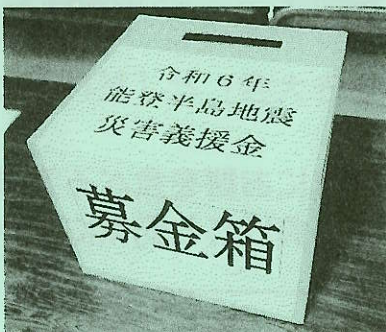 令和6年
能登半島地震
災害義援金
募金箱